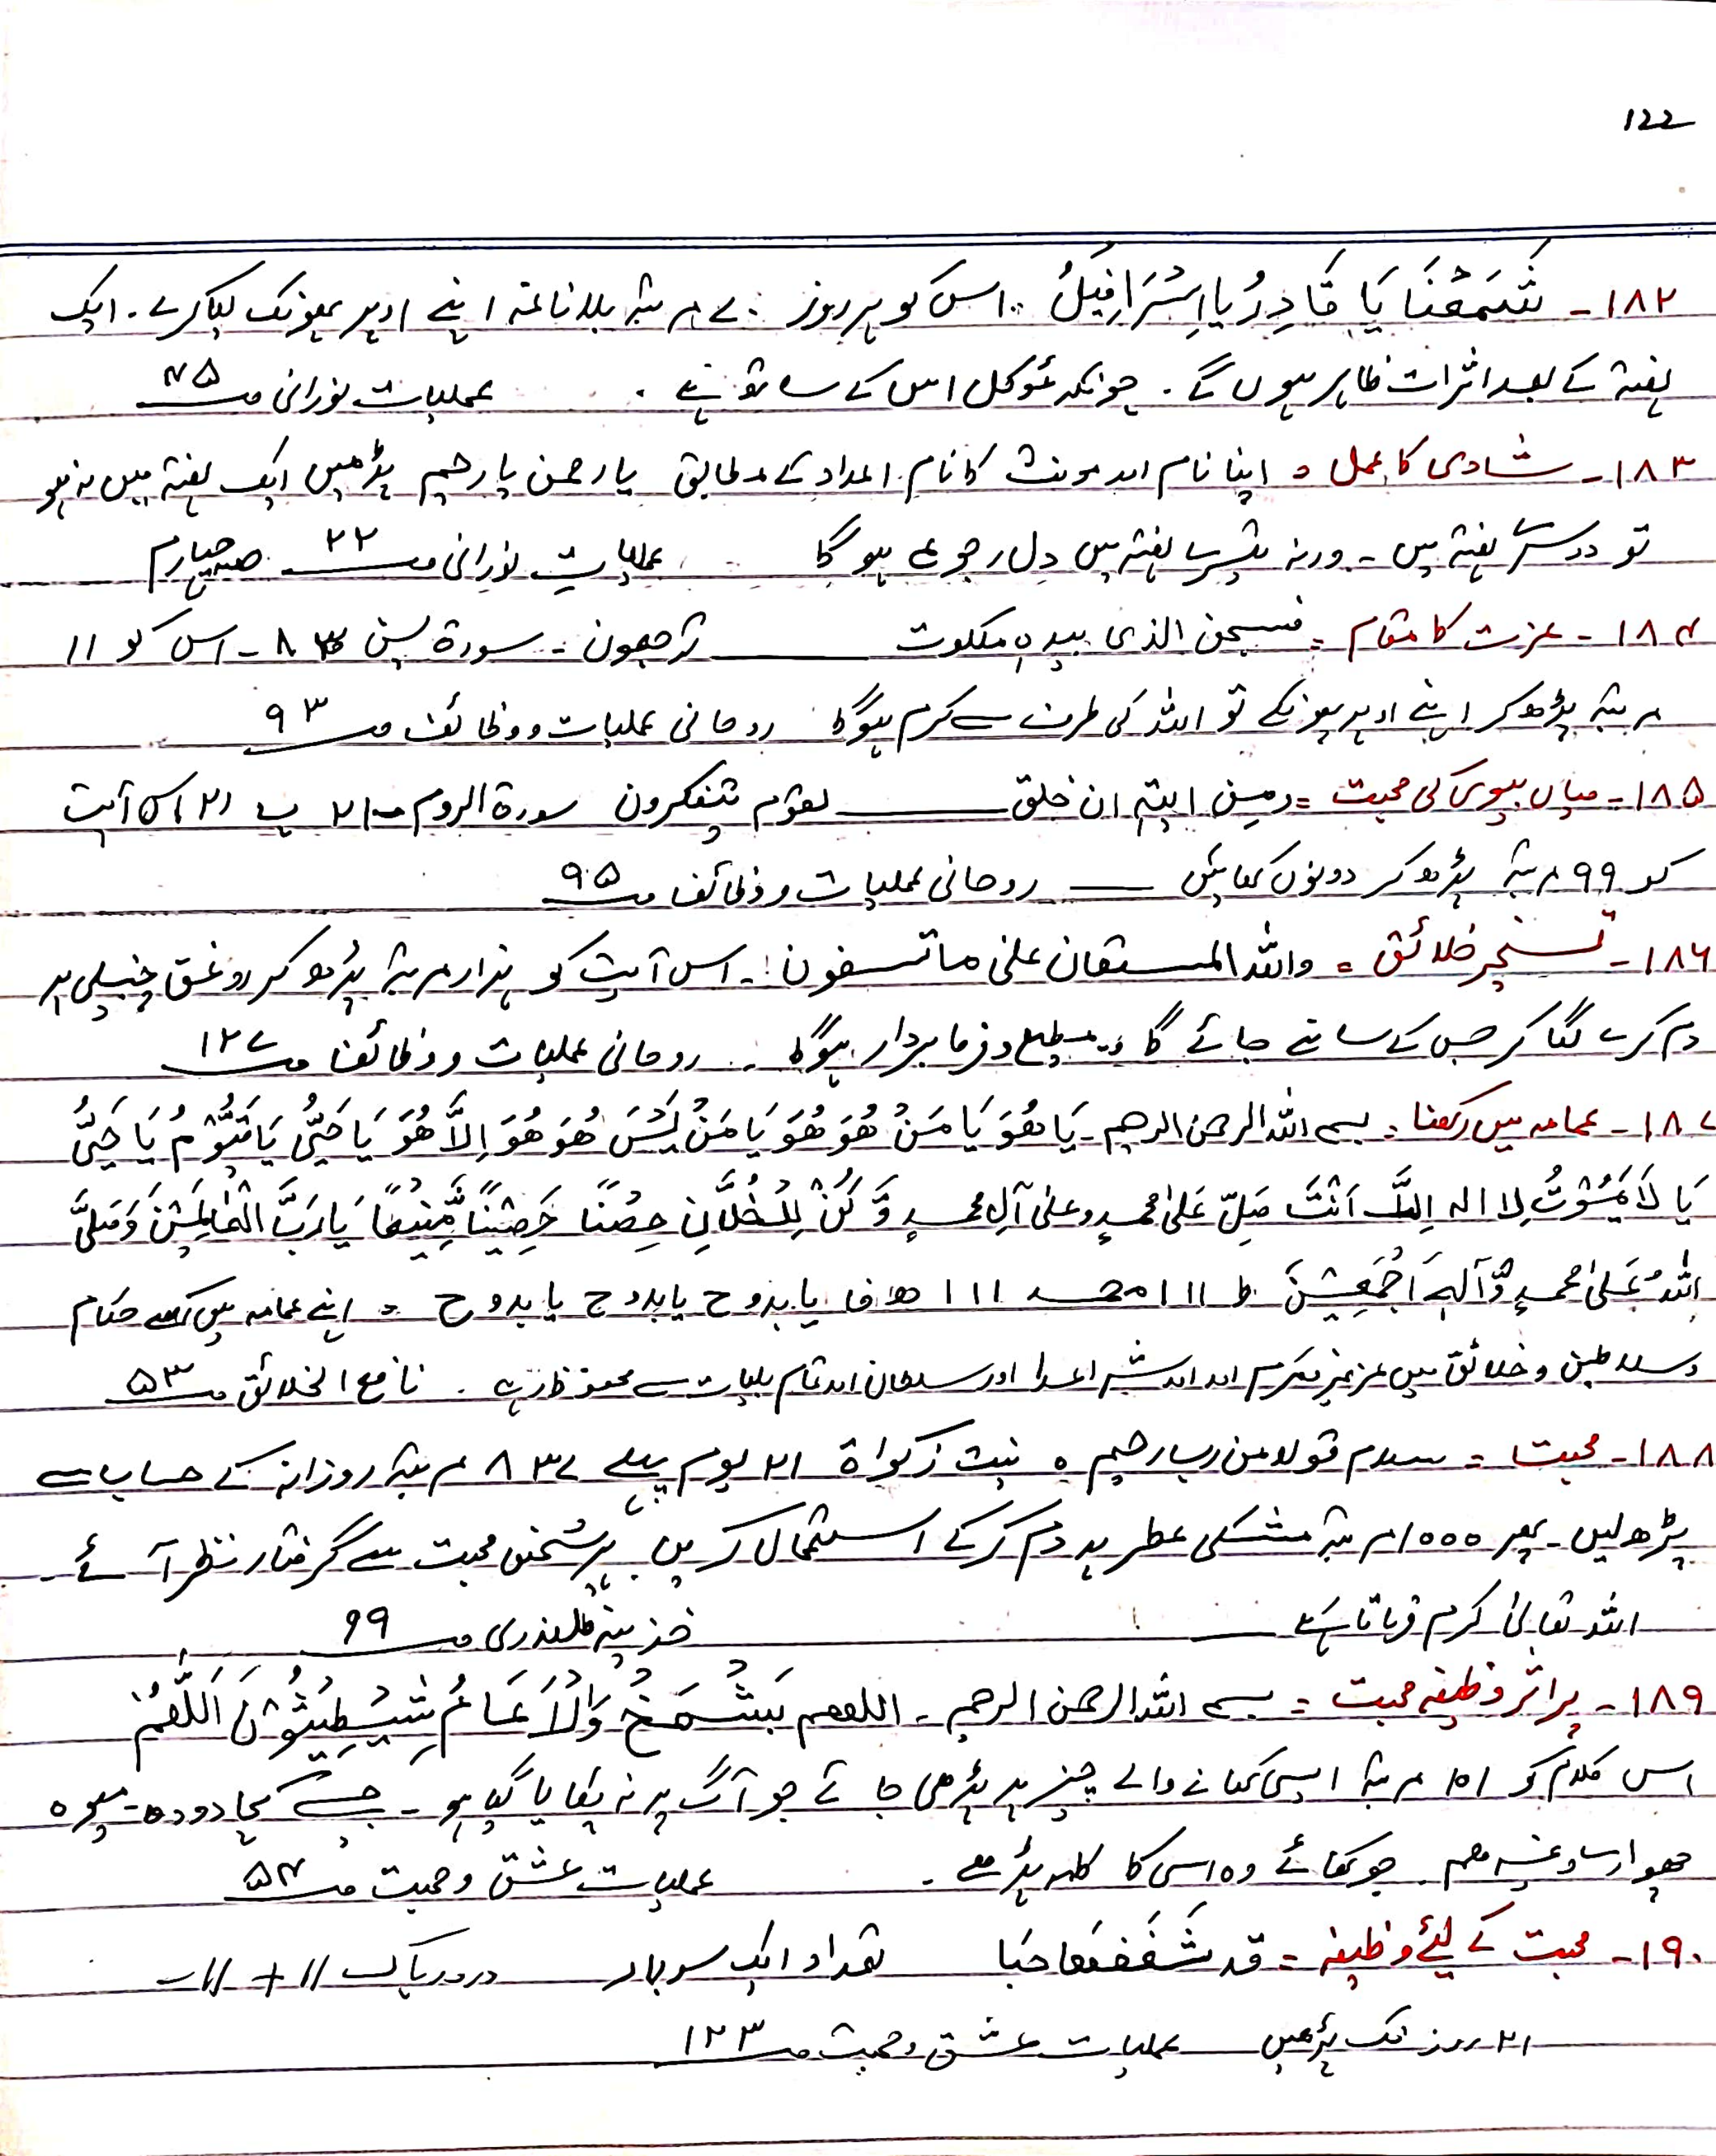 122
۱۸۲۔ شَمَعُنَا یَا قَادِرُ یا اِسْرَافِیْلُ ۔ اس کو ہر روز ۷۰ مرتبہ بلاناغہ اپنے اوپر پھونک لیا کرے۔ ایک
ہفتہ کے بعد اثرات ظاہر ہوں گے۔ چونکہ مؤکل اس کے ساتھ ہے۔ عملیات نورانی صـ ۴۵
۱۸۳۔ شادی کا عمل = اپنا نام اور مونث کا نام اعداد کے مطابق یا رحمن یا رحیم پڑھیں ایک ہفتہ میں نہ ہو
تو دوسرے ہفتہ میں۔ ورنہ تیسرے ہفتہ میں دل رجوع ہوگا عملیات نورانی صـ ۲۲ حصہ چہارم
۱۸۴۔ عزت کا مقام = فسبحن الذی بیدہ ملکوت ــــ ترجعون ۔ سورۃ یٰسن ۸۳ ۔ اس کو ۱۱
مرتبہ پڑھ کر اپنے اوپر پھونکے تو اللہ کی طرف سے کرم ہوگا روحانی عملیات و وظائف صـ ۹۳
۱۸۵۔ میاں بیوی کی محبت = ومن ایتہ ان خلق ــــ لقوم یتفکرون سورۃ الروم ۲۱ پ ۲۱ اس آیت
کو ۹۹ مرتبہ پڑھ کر دونوں کھائیں ــــ روحانی عملیات و وظائف صـ ۹۵
۱۸۶۔ تسخیر خلائق = واللہ المستعان علی ما تصفون ۔ اس آیت کو ہزار مرتبہ پڑھ کر روغن چنبیلی پر
دم کرے لگا کر جس کے سامنے جائے گا وہ مطیع و فرمابردار ہوگا ۔ روحانی عملیات و وظائف صـ ۱۲۷
۱۸۷۔ عمامہ میں رکھنا = بسم اللہ الرحمن الرحیم ۔ یَا ھُوَ یَا مَنْ ھُوَ ھُوَ یَا مَنْ لَیْسَ ھُوَ ھُوَ اِلَّا ھُوَ یَا حَیُّ یَا قَیُّوْمُ یَا حَیُّ
یَا لَا یَمُوْتُ لا الہ اِلَّا اَنْتَ صَلِّ عَلیٰ محمدٍ و علیٰ آلِ محمدٍ وَّ کُنْ لِفُلَانٍ حِصْنًا حَصِیْنًا مَّنِیْعًا یَا رَبَّ الْعَالَمِیْنَ وَصَلَّی
اللّٰہُ عَلیٰ محمدٍ وَّ آلِہٖ اَجْمَعِیْنَ ط ۱۱۱ ۱۱۱ ھ ف یا بدوح یا بدوح یا بدوح = اپنے عمامہ میں رکھے حکام
و سلاطین و خلائق میں عزیز مکرم اور شر اعدا اور سلطان اور تمام بلیات سے محفوظ رہے ۔ نافع الخلائق صـ ۵۳
۱۸۸۔ محبت = سلام قولا من رب رحیم ہ نیت زکواۃ ۲۱ یوم پہلے ۸۳۷ مرتبہ روزانہ کے حساب سے
پڑھ لیں ۔ پھر ۱۰۰۰ مرتبہ مشکی عطر پر دم کرکے استعمال کریں ہر شخص محبت سے گرفتار نظر آئے ۔
اللہ تعالیٰ کرم فرماتا ہے ــــ خزینہ قلندری صـ ۶۹
۱۸۹۔ پراثر وظیفہ محبت = بسم اللہ الرحمن الرحیم ۔ اللھم اَللّٰھُمَّ
اس کلام کو ۱۵۱ مرتبہ ایسی کھانے والے چیز پر پڑھی جائے جو آگ پر نہ پکایا گیا ہو ۔ جیسے کچا دودھ ۔ میوہ
چھوارے وغیرہم ۔ جو کھائے وہ اسی کا کلمہ پڑھے ۔ عملیات عشق و محبت صـ ۵۴
۱۹۰۔ محبت کے لیئے وظیفہ = قد شَغَفَھَا حُبَا تعداد ایک سو بار درود پاک ۱۱ + ۱۱
۲۱ روز تک پڑھیں عملیات عشق و محبت صـ ۱۲۳